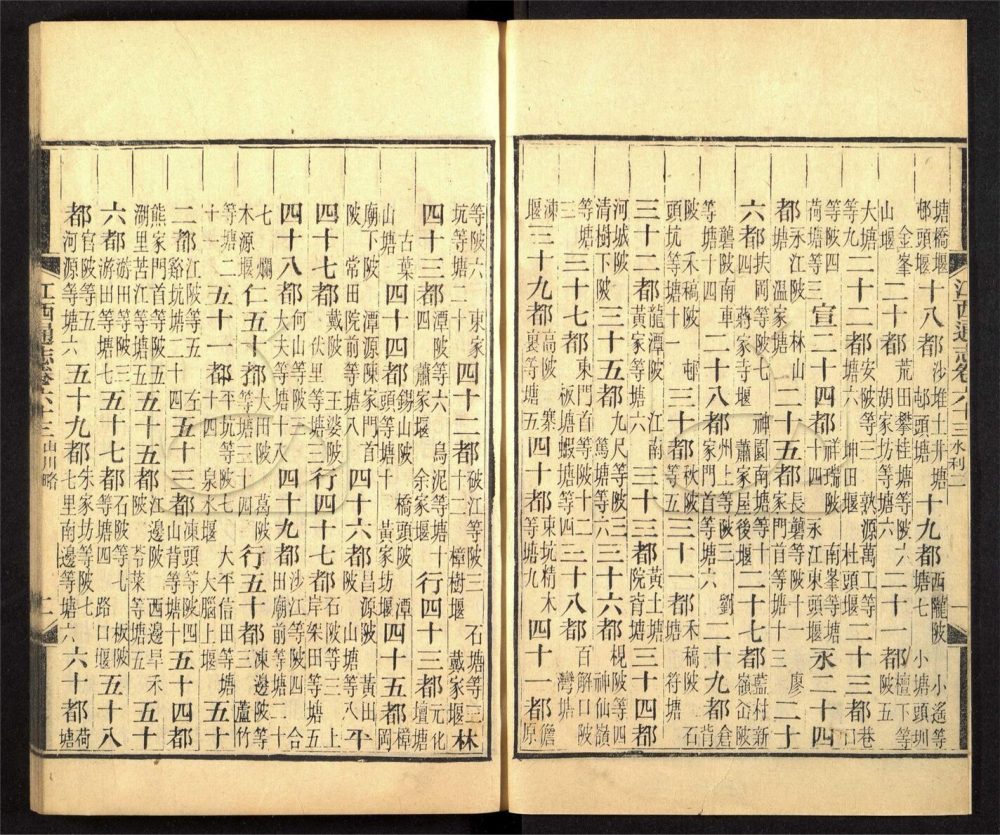 塘橋堰 邨頭堰 十八都 沙堆土井塘 邨頭塘 十九都 西隴陂 小遙等塘七 小塘頭圳
金峯山堰 二十都 荒田攀桂塘 胡家坊等塘六 二十一都 檀下等陂五
大塘等九 二十二都 大安陂等三 坤田堰 敦源萬工等 杜頭堰 二十三都
等陂四 荷塘等三 宣二十四都 祥瑞陂 南峯等塘十四 永江東頭堰 永二十四
都 永江陂 林山塘 溫家陂 二十五都 長蘿等陂十一 家門首等塘十三 廖 二十
六都 扶岡等陂七 蔣家寺堰 神園南塘等十 蕭家屋後堰 二十七都 藍村新陂 嶺峃陂
蘿陂南車等塘十四 二十八都 州上等陂三 家門首等塘六 劉 二十九都 背倉
陂 禾稿陂 頭坑等塘十一 邨 三十都 秋陂 等塘五 三十一都 禾稿陂 符塘 石
三十二都 龍潭陂 黃家等塘十 江南 三十三都 黃土塘 院背塘 三十四都
河城陂 清樹下陂 三十五都 九尺等陂三 篤塘等六 三十六都 梘陂等四 神仙嶺
等塘三 三十七都 東門首等陂十二 板塘蝦塘等四 三十八都 百解口陂 灣塘
堰 三十九都 高陂 裏等塘五 寨 四十都 東坑精木塘等九 四十一都 原
江西通志卷六十三 水利二 一
等陂六 坑等塘二十 東家 四十二都 破江等陂三 十二 樟樹堰 石塘等三 戴家堰 林
四十三都 東潭陂等六 四 蕭家堰 烏泥等塘十 余家堰 行四十三都 元化壇塘
山塘 古葉塘 四十四都 錫山陂 頭塘等十 橋頭陂 黃家坊堰 潭 四十五都 樟岡
廟下陂 潭源陳家門首 陂 常田院前等塘八 四十六都 昌源陂 黃田 山塘等八 平
四十七都 戴陂 王婆陂 伏里等塘三 行四十七都 石陂等三 岸架田等塘五 上
四十八都 何山等陂三 大夫等塘十八 四十九都 沙江等陂四 田廟前等塘二十 合
七 爛木源 仁五十都 大田陂 葛陂 等塘三十四 行五十都 涷邊陂等三 蘆竹
等塘二十一 五十一都 平坑等陂七 十四 泉水堰 大平信田等塘 大腦上堰 五十
二都 江陂等五 谿坑塘二十四 左 五十三都 凍頭等陂四 山背等塘十四 五十四都
熊家門首等陂五 澗里苦江等塘五 五十五都 江邊陂 西邊旱禾陂 苓菜等塘五 五十
六都 游田等陂三 石游田等塘七 五十七都 石陂等七 板陂 等塘四 路口堰 五十八
都 官陂等五 河源等塘六 五十九都 朱家坊等陂七 七里南邊等塘六 六十都 荷塘
江西通志卷六十三 山川略 二